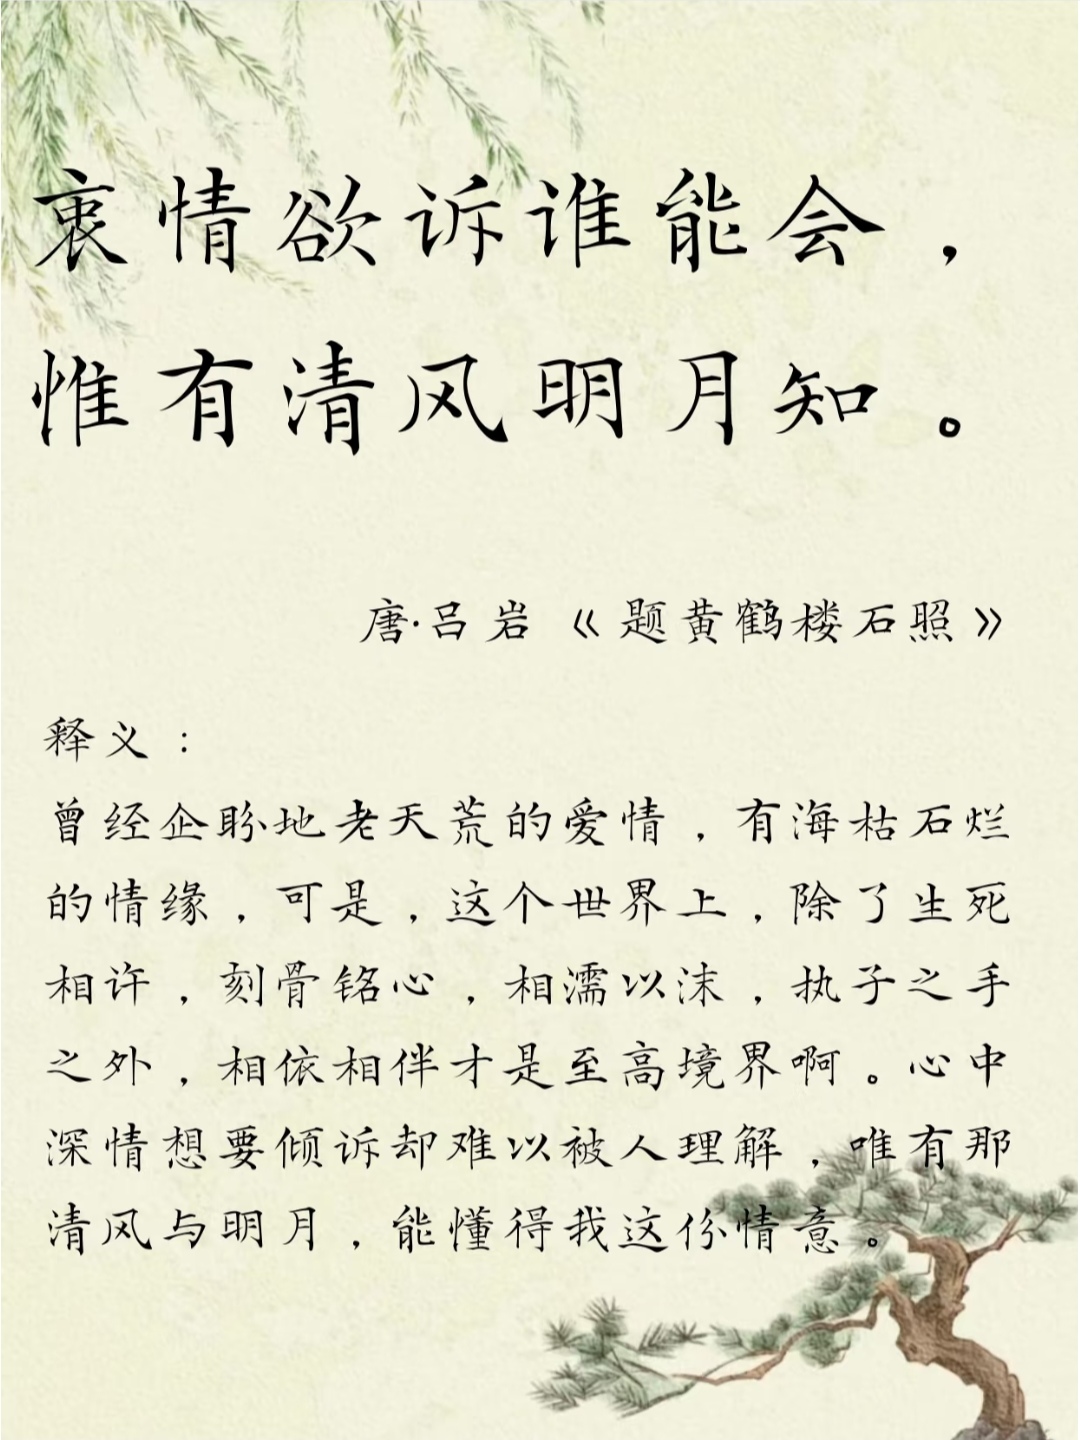 衷情欲诉谁能会，
惟有清风明月知。
唐·吕岩《题黄鹤楼石照》
释义：
曾经企盼地老天荒的爱情，有海枯石烂
的情缘，可是，这个世界上，除了生死
相许，刻骨铭心，相濡以沫，执子之手
之外，相依相伴才是至高境界啊。心中
深情想要倾诉却难以被人理解，唯有那
清风与明月，能懂得我这份情意。